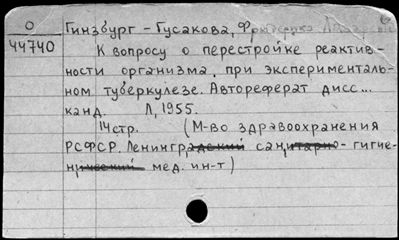 О
44740
Гинзбург-Гусакова,
К вопросу о перестройке реактив-
ности организма при эксперименталь-
ном туберкулезе. Автореферат дисс...
канд. Л, 1955.
14стр. (М-во здравоохранения
РСФСР. Ленинградский санитарно-гигие-
нический мед. ин-т)